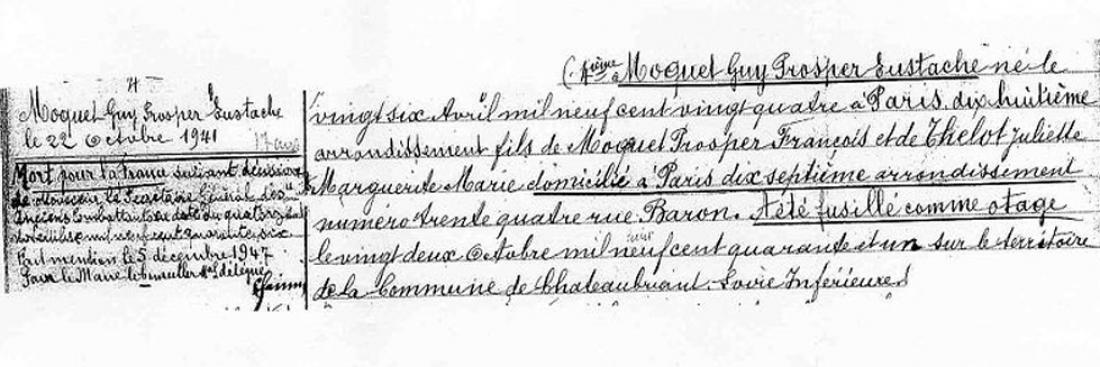 4
Moquet Guy Prosper Eustache
le 22 Octobre 1941
17 ans
Mort pour la France suivant décision
de Monsieur le Secrétaire Général des
Anciens Combattants en date du quatorze
novembre mil neuf cent quarante six
Fait mention le 5 décembre 1947
Pour le Maire le Conseiller Mal délégué
(4ième Moquet Guy Prosper Eustache né le
vingt six Avril mil neuf cent vingt quatre à Paris, dix huitième
arrondissement fils de Moquet Prosper François et de Thelot Juliette
Marguerite Marie domicilié à Paris dix septième arrondissement
numéro trente quatre rue Baron. A été fusillé comme otage
le vingt deux Octobre mil neuf cent quarante et un sur le territoire
de la Commune de Chateaubriant. Loire Inférieure